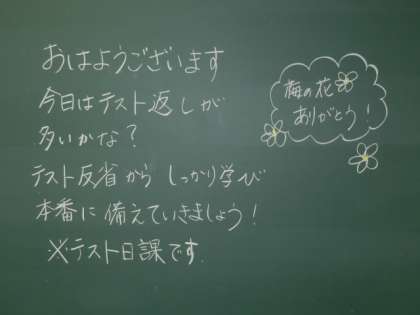 おはようございます
今日はテスト返しが
多いかな？
テスト反省から しっかり学び
本番に備えていきましょう！
※テスト日課です.
梅の花
ありがとう！